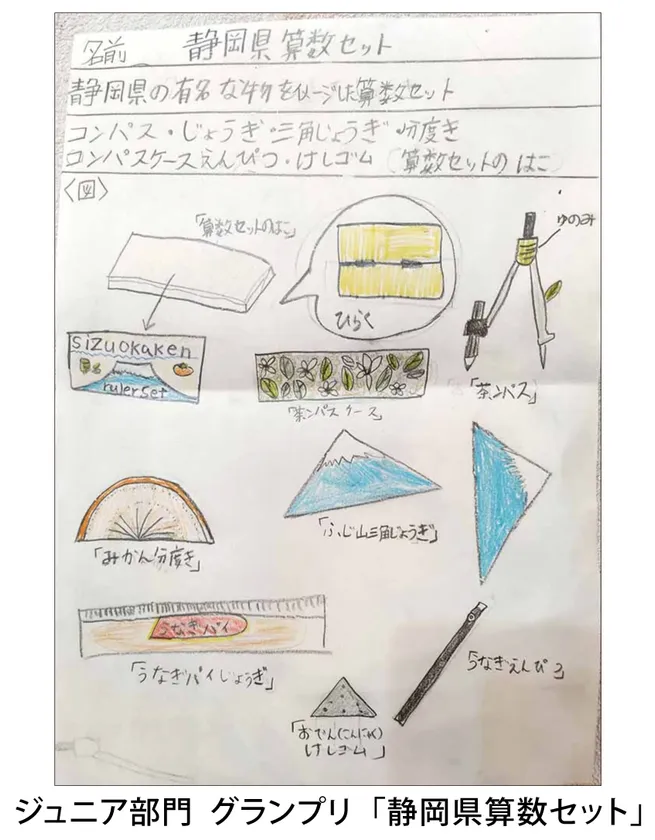 名前 静岡県算数セット
静岡県の有名な物をイメージした算数セット
コンパス・じょうぎ・三角じょうぎ・分度き
コンパスケースえんぴつ・けしゴム (算数セットのはこ)
〈図〉
「算数セットのはこ」
ひらく
ゆのみ
sizuokaken
rulerset
「茶ンパス」
「茶ンパスケース」
「みかん分度き」
「ふじ山三角じょうぎ」
うなぎパイ
「うなぎパイじょうぎ」
「うなぎえんぴつ」
「おでん(こんにゃく)
けしゴム」
ジュニア部門 グランプリ「静岡県算数セット」